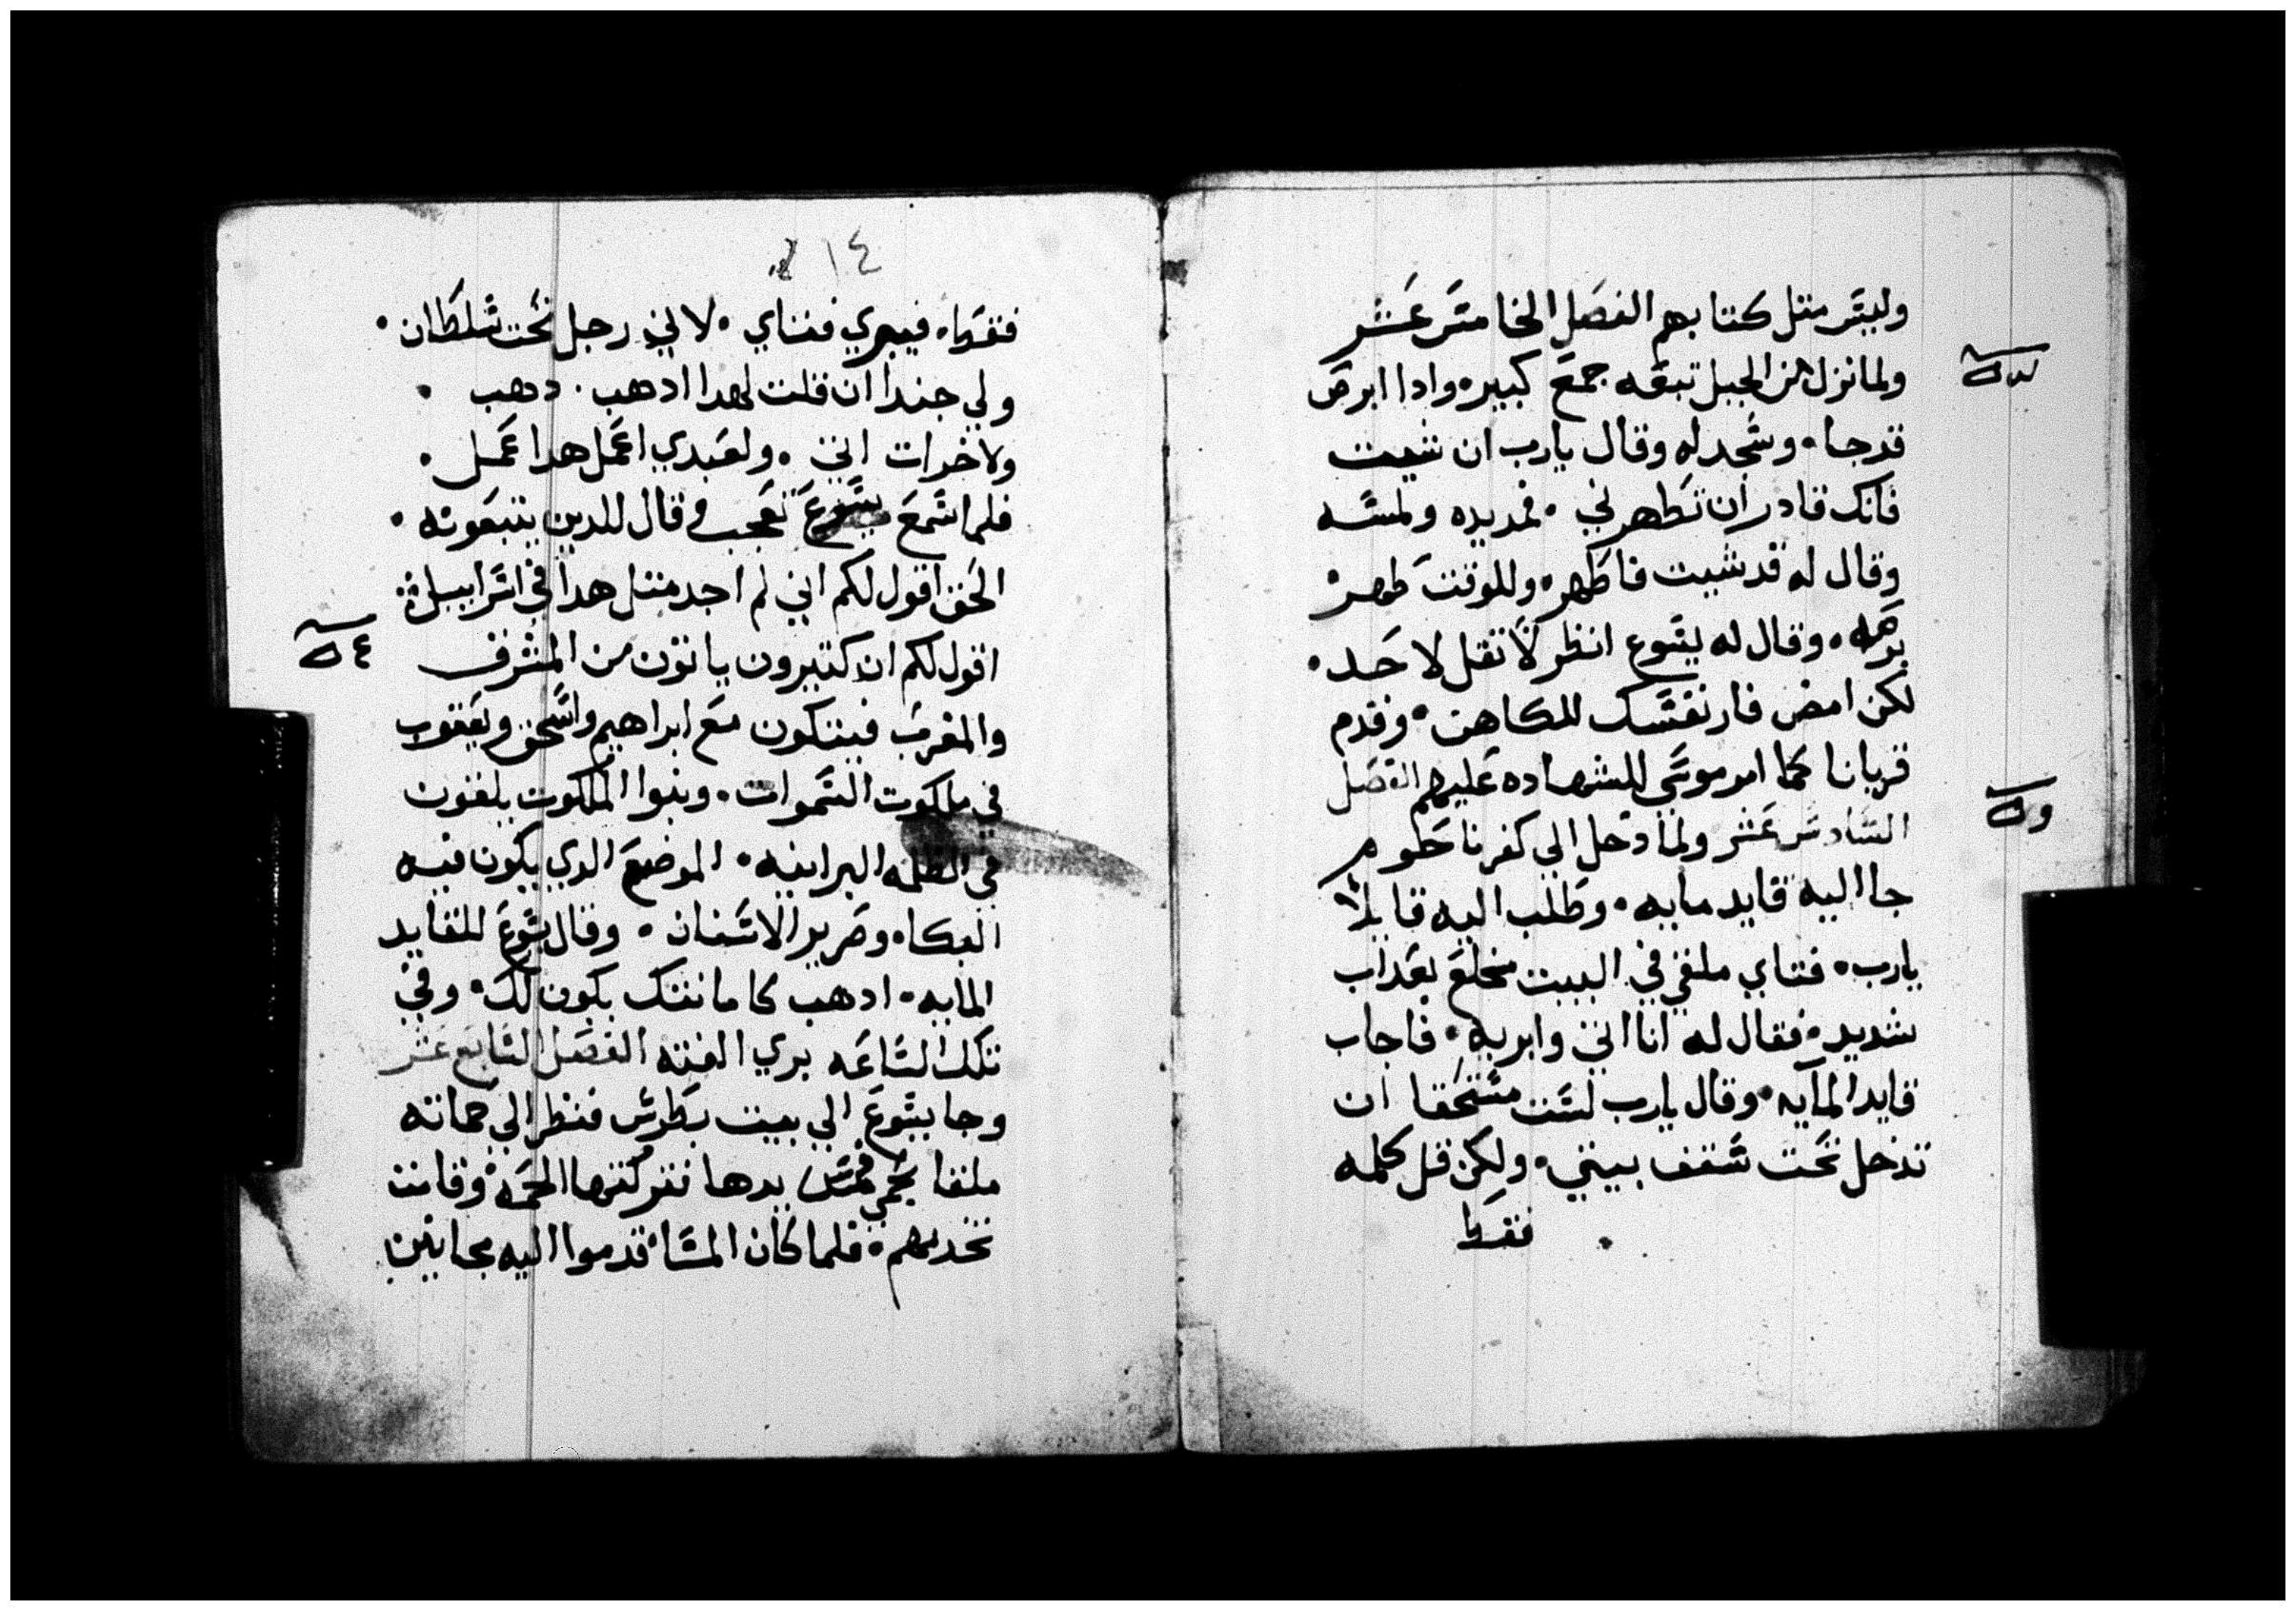 وليس مثل كتابهم الفصل الخامس عشر
ولما نزل من الجبل تبعه جمع كبير• وادا ابرص
قد جا• وسجد له وقال يارب ان شيت
فانك قادر ان تطهرني• فمد يده ولمسه
وقال له قد شيت فاطهر• وللوقت طهر
برصه• وقال له يسوع انظر لا تقل لاحد•
لكن امض فار نفسك للكاهن• وقدم
قربانا كما امر موسى للشهاده عليهم الفصل
السادس عشر ولما دخل الي كفرناحوم
جا اليه قايد مايه• وطلب اليه قايلا
يارب• فتاي ملقي في البيت مخلع بعداب
شديد• فقال له انا اتي وابريه• فاجاب
قايد المايه• وقال يارب لست مستحقا ان
تدخل تحت سقف بيتي• ولكن قل كلمه
فقط
١٤
فقط• فيبري فتاي• لاني رجل تحت سلطان•
ولي جندا ان قلت لهدا ادهب• دهب•
ولاخر ات اتي• ولعبدي اعمل هدا عمل•
فلما سمع يسوع تعجب وقال للدين يتبعونه•
الحق اقول لكم اني لم اجد مثل هدا في اسراييل
اقول لكم ان كتيرون ياتون من المشرق
والمغرب فيتكون مع ابراهيم واسحق ويعقوب
في ملكوت السموات• وبنوا الملكوت يلقون
في الظلمه البرانيه• الموضع الدي يكون فيه
البكاء وصرير الاسنان• وقال يسوع للقايد
المايه• ادهب كامانتك يكون لك• وفي
تلك الساعه بري الفتي الفصل السابع عشر
وجا يسوع الي بيت بطرس فنظر الي حماته
ملقا بحمي فمس يدها فتركتها الحمي• وقامت
تخدمهم• فلما كان المسا• قدموا اليه مجانين